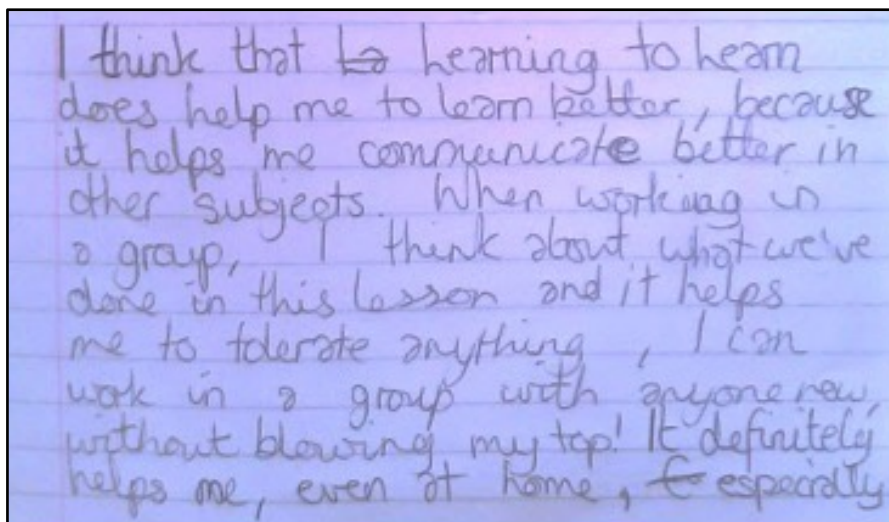 I think that Learning to Learn
does help me to learn better, because
it helps me communicate better in
other subjects. When working in
a group, I think about what we've
done in this lesson and it helps
me to tolerate anything, I can
work in a group with anyone new,
without blowing my top! It definitely
helps me, even at home, especially